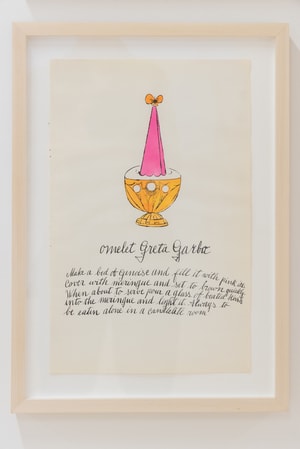 omelet Greta Garbo
Make a bed of Genoese and fill it with pink ice.
Cover with meringue and set to brown quickly
When about to serve pour a glass of heated
into the meringue and light it. Always to
be eaten alone in a candlelit room